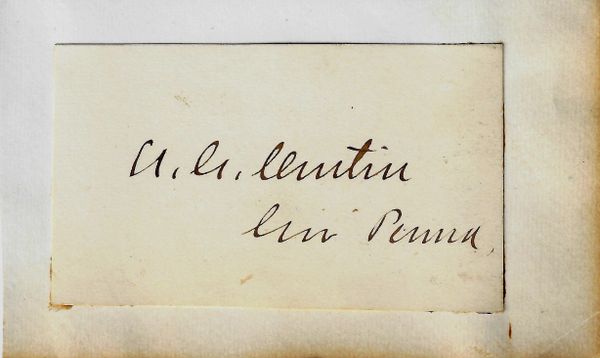 A. G. Curtin
Gov Penna,